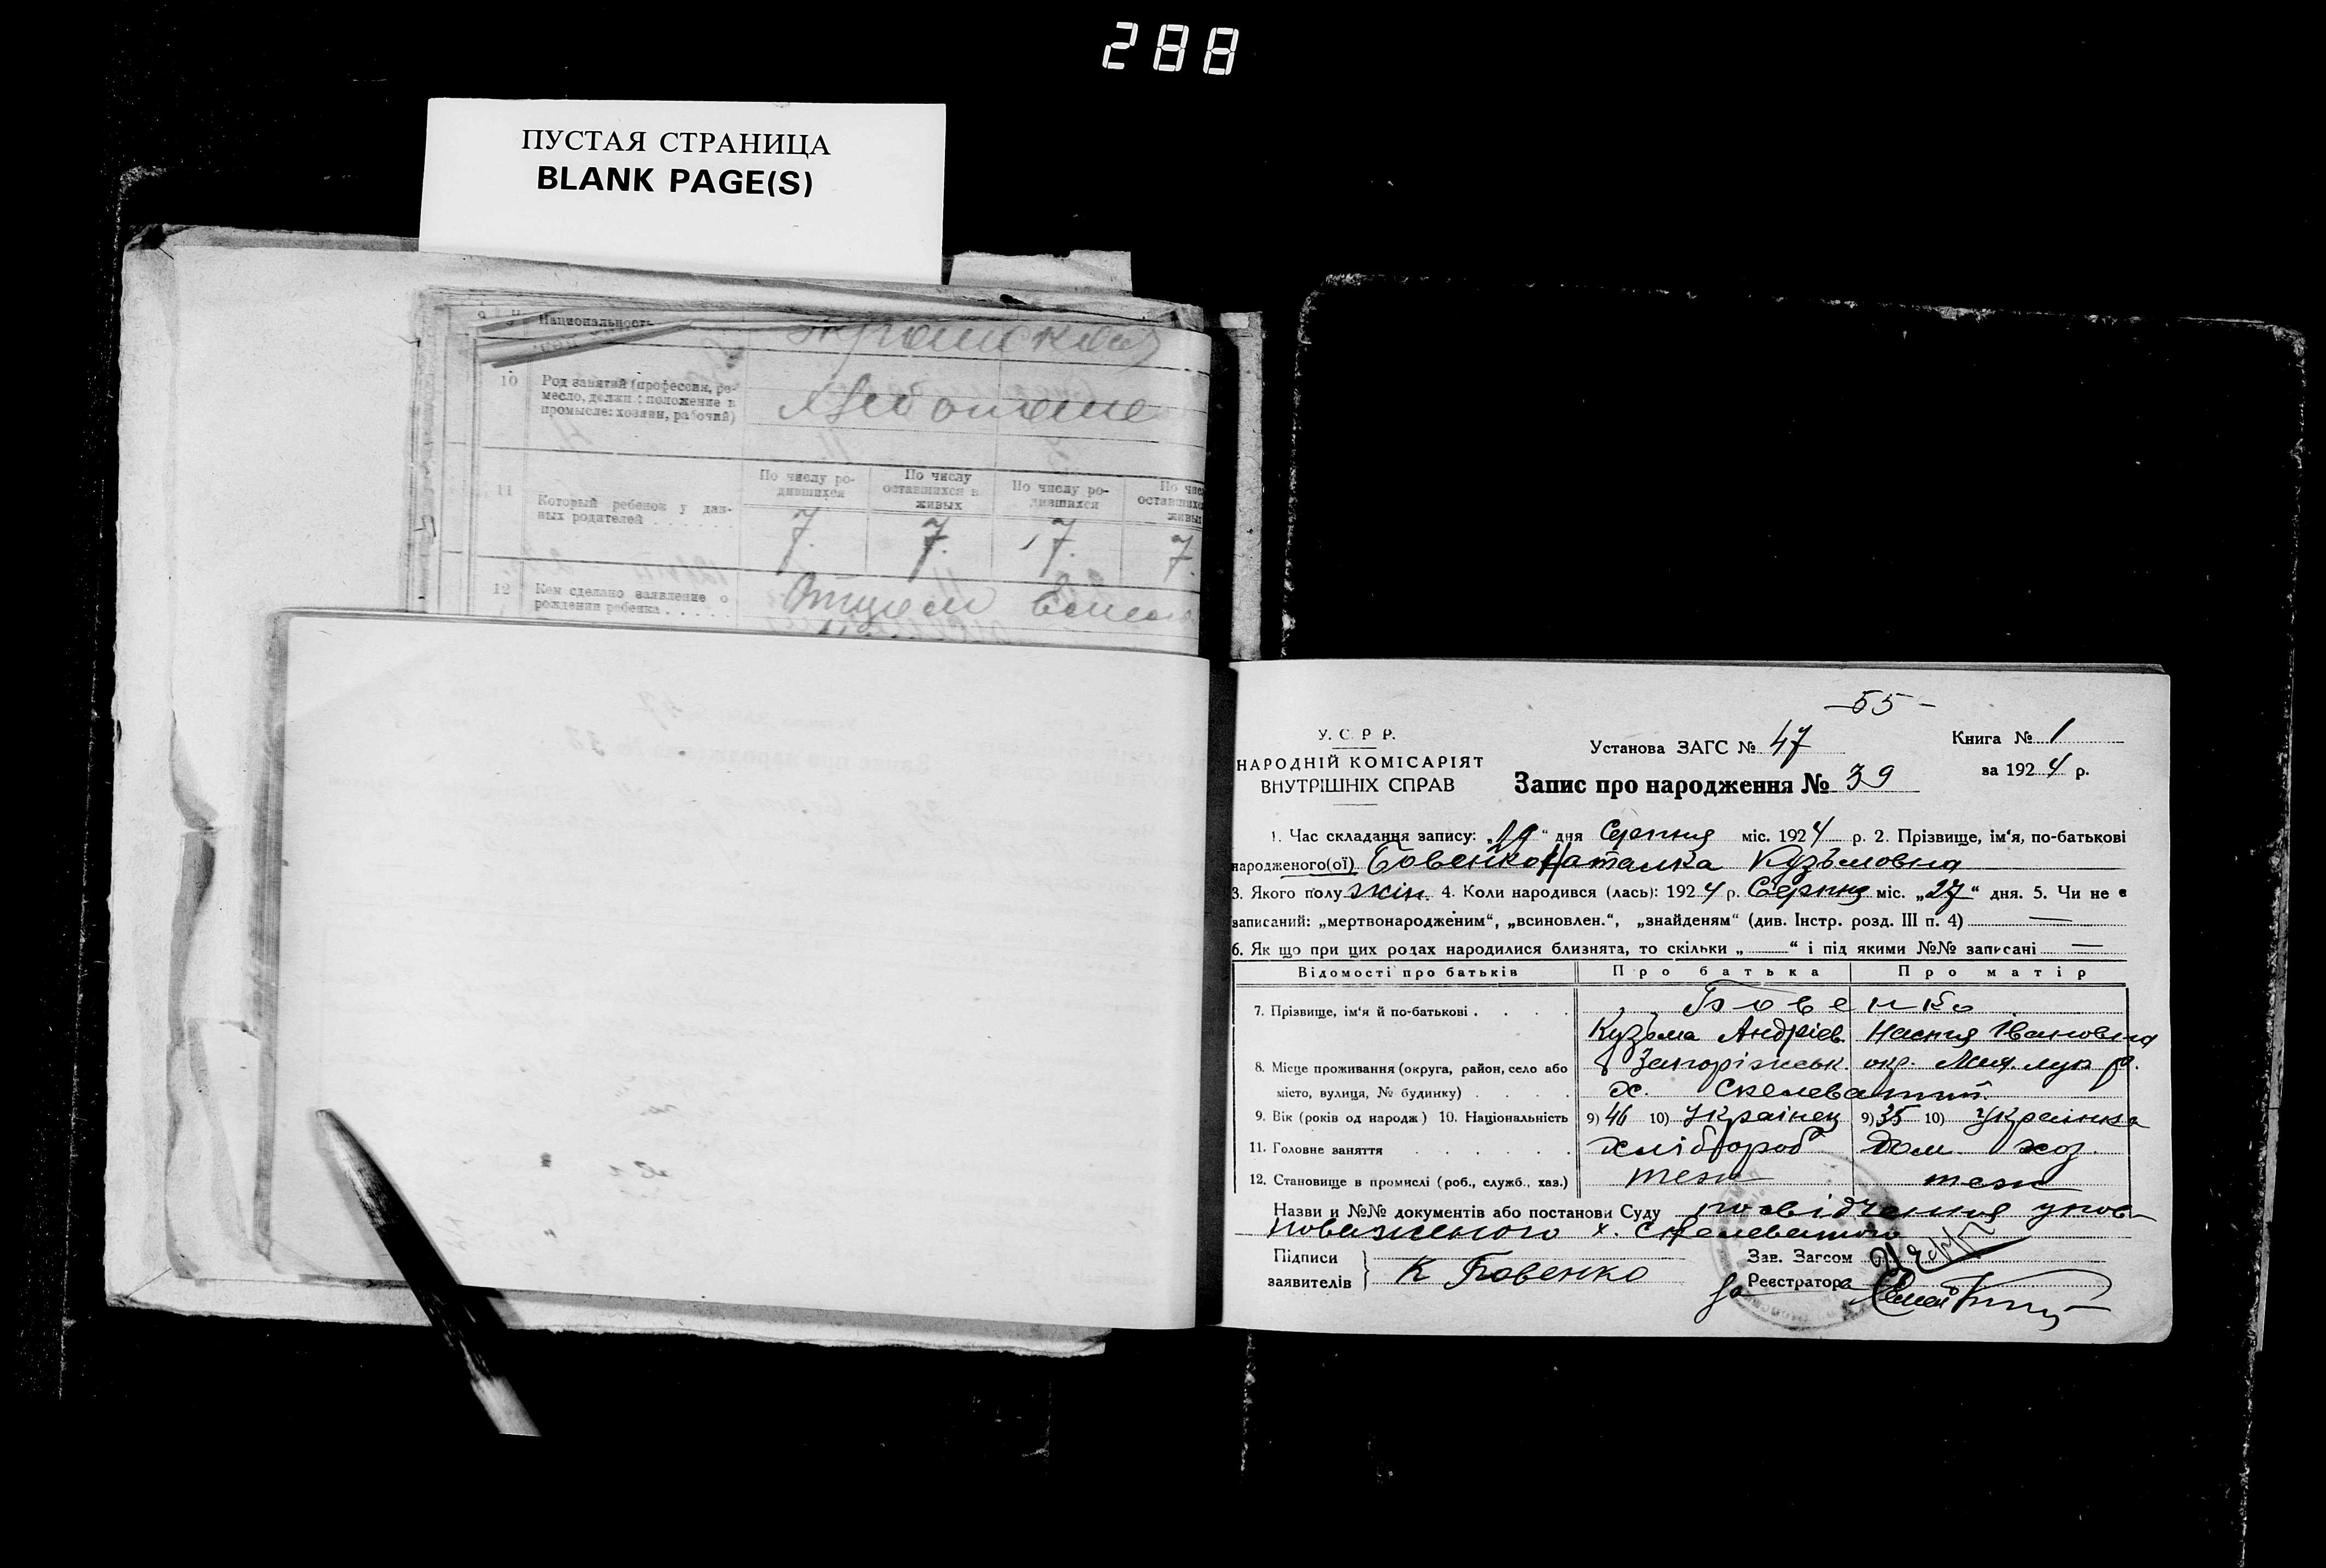 288
ПУСТАЯ СТРАНИЦА
BLANK PAGE(S)
9 Национальность
10 Род занятий (профессия, ре-
месло, должн.: положение в
промысле: хозяин, рабочий)
По числу ро- По числу По числу ро-
дившихся оставшихся в дившихся
живых
11 Который ребенок у дан-
ных родителей
7. 7. 7. 7.
12 Кем сделано заявление о
рождении ребенка Отцом
-55-
У. С. Р. Р.
НАРОДНІЙ КОМІСАРІЯТ
ВНУТРІШНІХ СПРАВ
Установа ЗАГС № 47
Книга № 1
за 1924 р.
Запис про народження № 39
1. Час складання запису: „29“ дня Серпня міс. 1924 р. 2. Прізвище, ім‘я, по-батькові
народженого(ої) Бовенко Наталка Кузьмовна
3. Якого полу жін. 4. Коли народився (лась): 1924 р. Серпня міс. „27“ дня. 5. Чи не є
записаний: „мертвонародженим“, „всиновлен.“, „знайденям“ (див. Інстр. розд. III п. 4) —
6. Як що при цих родах народилися близнята, то скільки „ “ і під якими №№ записані —
Відомості про батьків Про батька Про матір
7. Прізвище, ім‘я й по-батькові . . . . Бовенко
Кузьма Андріев. Настя Івановна
8. Місце проживання (округа, район, село або Запоріжськ. окр. р.
місто, вулиця, № будинку) . . . . х. Скелеватий
9. Вік (років од народж) 10. Національність 9) 46 10) Українец 9) 35 10) Українка
11. Головне заняття . . . . . . хлібороб дом хоз.
12. Становище в промислі (роб., служб., хаз.) теж теж
Назви и №№ документів або постанови Суду посвідчення упов-
новаженого х. Скелеватого
Підписи
заявителів К Бовенко
Зав. Загсом
за Реєстратора